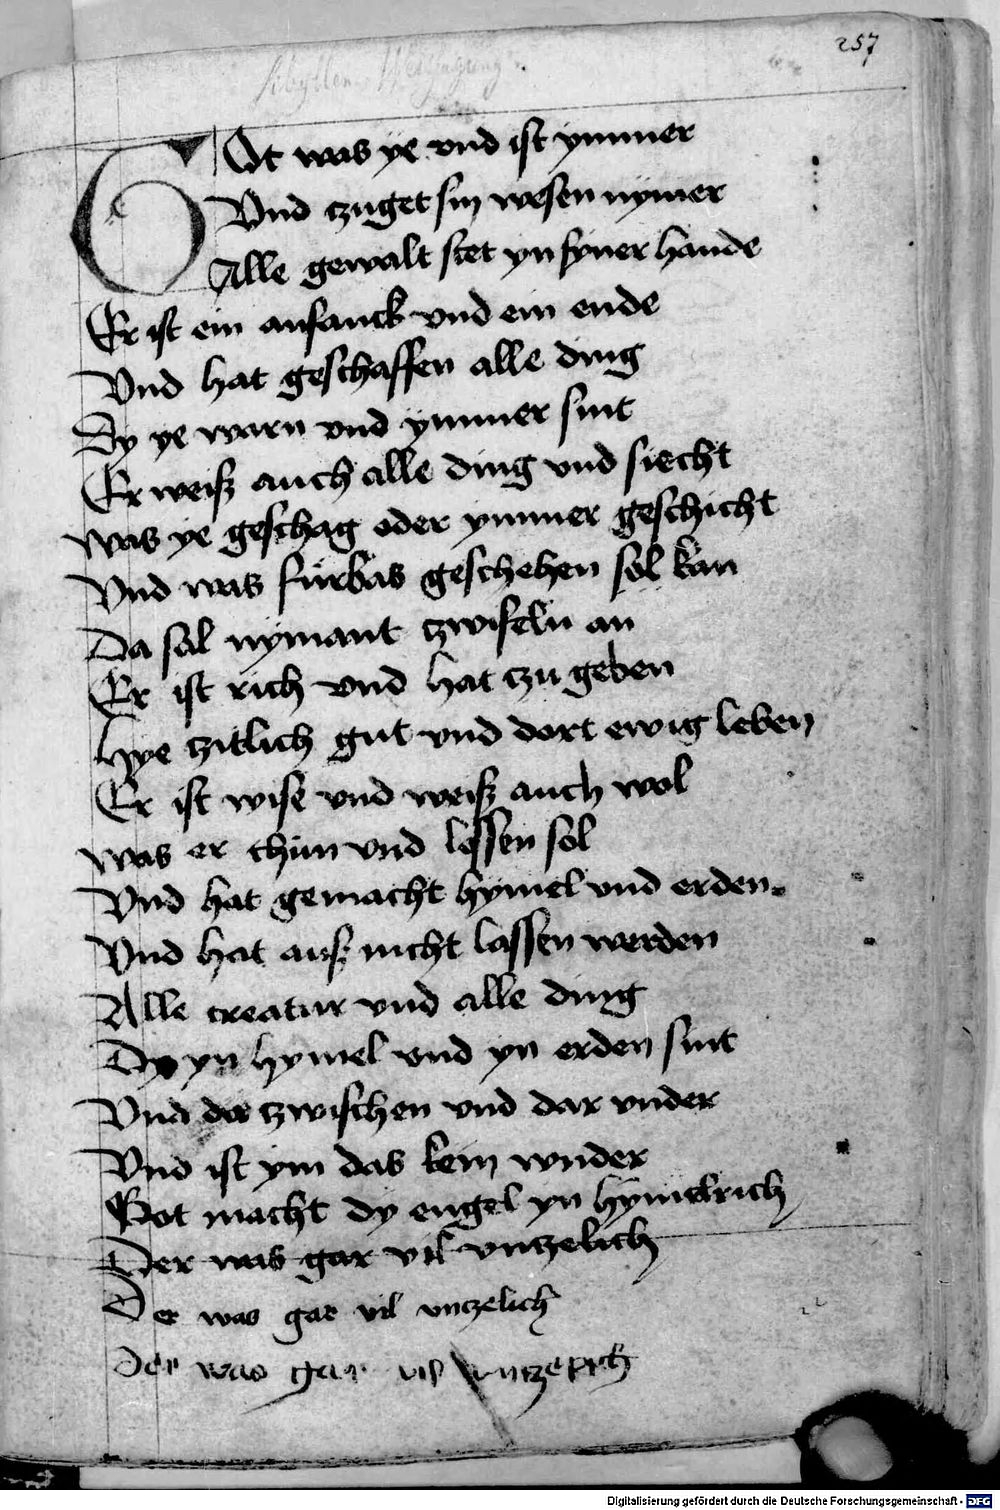 257
Sibyllen Weissagung
GOt was ye vnd ist ymmer
Vnd czuget sin wesen nymer
Alle gewalt stet yn syner hande
Er ist ein anfanck vnd ein ende
Vnd hat geschaffen alle ding
Dy ye warn vnd ymmer sint
Er weisz auch alle ding vnd siecht
Was ye geschag oder ymmer geschicht
Vnd was fürbas geschehen sol kan
Da sal nymant czwifeln an
Er ist rich vnd hat czu geben
Hye czitlich gut vnd dort ewig leben
Er ist wise vnd weisz auch wol
Was er thun vnd lossen sol
Vnd hat gemacht hymel vnd erden
Vnd hat ausz nicht lassen werden
Alle creatur vnd alle ding
Dy yn hymel vnd yn erden sint
Vnd do czwischen vnd dar vnder
Vnd ist ym das kein wnder
Got macht dy engel yn hymelrich
Der was gar vil vnczelich
Der was gar vil vnczelich
Der was gar vil
Digitalisierung gefördert durch die Deutsche Forschungsgemeinschaft - DFG